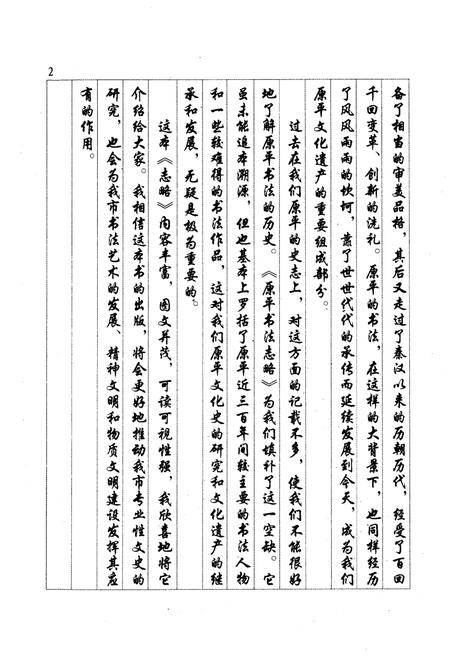 备了相当的审美品格，其后又走过了秦汉以来的历朝历代，经受了百回
千回变革、创新的洗礼。原平的书法，在这样的大背景下，也同样经历
了风风雨雨的坎坷，靠了世世代代的承传而延续发展到今天，成为我们
原平文化遗产的重要组成部分。
过去在我们原平的史志上，对这方面的记载不多，使我们不能很好
地了解原平书法的历史。《原平书法志略》为我们填补了这一空缺。它
虽未能追本溯源，但也基本上罗括了原平近三百年间较主要的书法人物
和一些较难得的书法作品，这对我们原平文化史的研究和文化遗产的继
承和发展，无疑是极为重要的。
这本《志略》内容丰富，图文并茂，可读可视性强，我欣喜地将它
介绍给大家。我相信这本书的出版，将会更好地推动我市专业性文史的
研究，也会为我市书法艺术的发展、精神文明和物质文明建设发挥其应
有的作用。
2